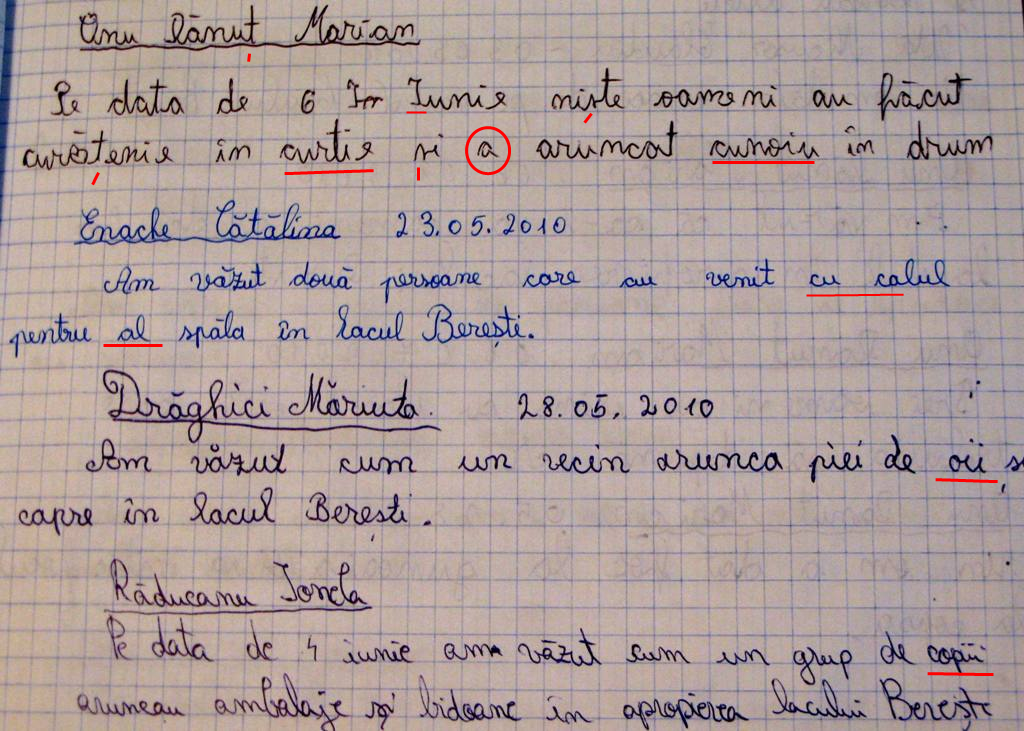 Onu Dănuț Marian
Pe data de 6 Iunie niște oameni au făcut
curățenie în curtie și a aruncat cunoiu în drum
Enache Cătălina 23.05.2010
Am văzut două persoane care au venit cu calul
pentru al spăla în lacul Berești.
Drăghici Măriuta. 28.05.2010
Am văzut cum un vecin arunca piei de oii
capre în lacul Berești.
Răducanu Ionela
Pe data de 4 iunie am văzut cum un grup de copii
aruncau ambalaje și bidoane în apropierea lacului Berești